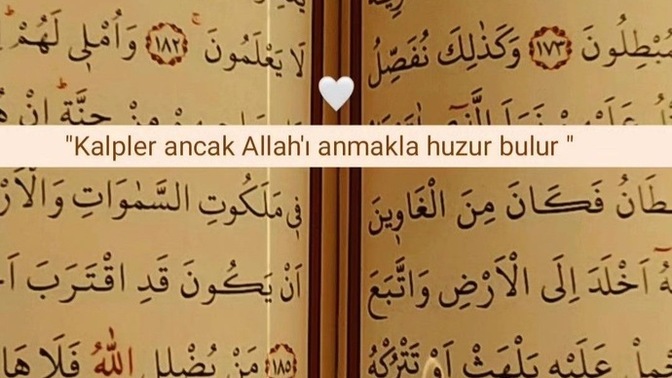 مُبْطِلُونَ ﴿١٧٣﴾ وَكَذٰلِكَ نُفَصِّلُ
"Kalpler ancak Allah'ı anmakla huzur bulur "
طَانُ فَكَانَ مِنَ الْغَاوٖينَ
اَخْلَدَ اِلَى الْاَرْضِ وَاتَّبَعَ
عَلَيْهِ يَلْهَثْ اَوْ تَتْرُكْهُ
لَا يَعْلَمُونَ ﴿١٨٢﴾ وَاُمْلٖي لَهُمْ
جِنَّةٍ اِنْ
فٖي مَلَكُوتِ السَّمٰوَاتِ وَالْاَرْ
اَنْ يَكُونَ قَدِ اقْتَرَبَ
﴿١٨٥﴾ مَنْ يُضْلِلِ اللّٰهُ فَلَا هَا